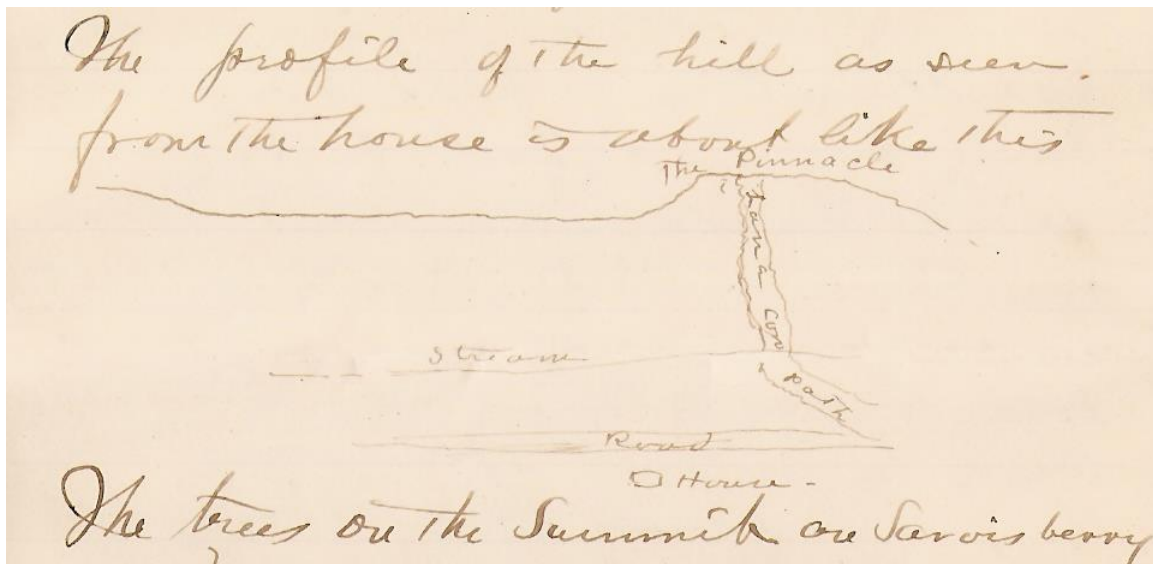 The profile of the hill as seen.
from the house is about like this
The Pinnacle
Cow
Path
Stream
Road
House -
The trees on the Summit are Sarvis berry